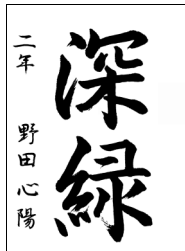 深緑
二年 野田心陽